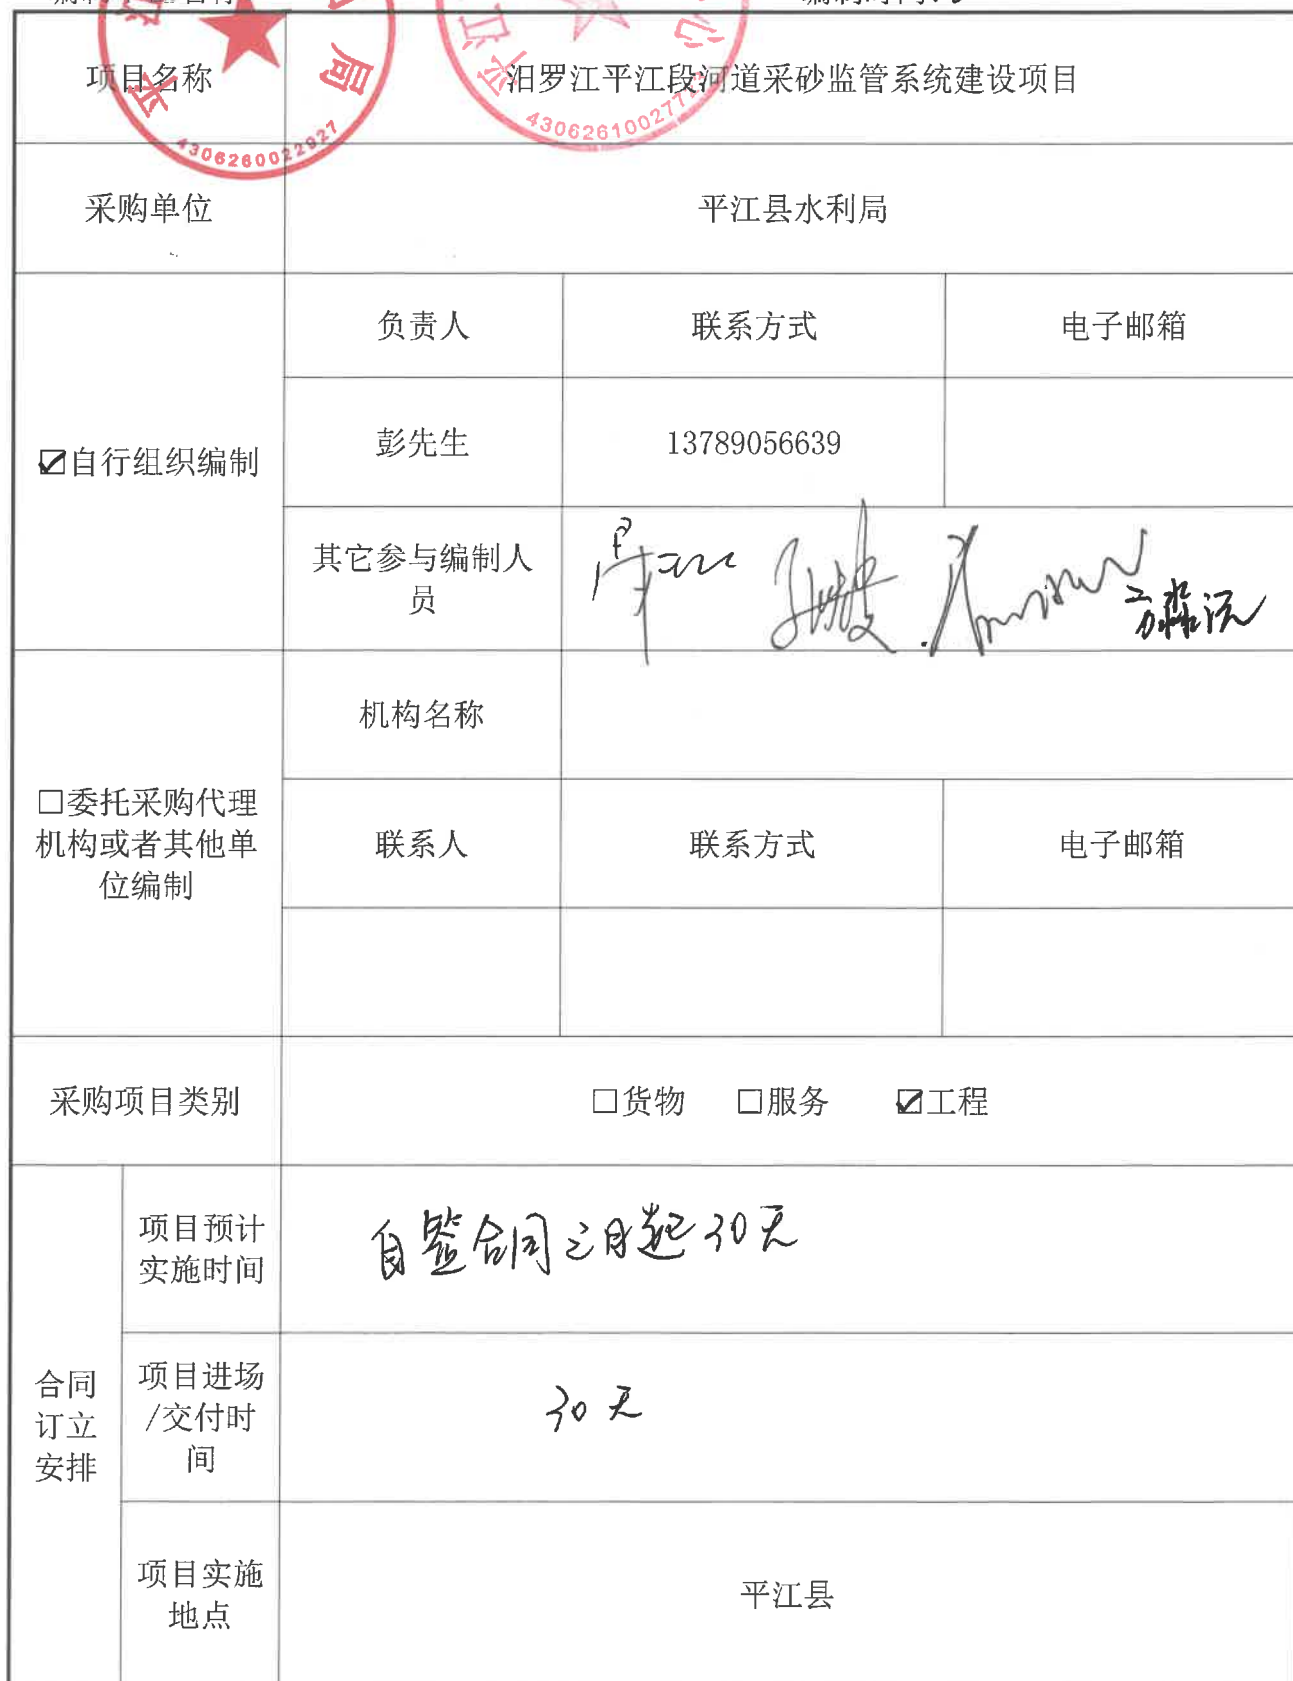 项目名称
汨罗江平江段河道采砂监管系统建设项目
4306260022927
采购单位
平江县水利局
☑自行组织编制
负责人
联系方式
电子邮箱
彭先生
13789056639
其它参与编制人
员
□委托采购代理
机构或者其他单
位编制
机构名称
联系人
联系方式
电子邮箱
采购项目类别
□货物 □服务 ☑工程
合同
订立
安排
项目预计
实施时间
自签合同之日起30天
项目进场
/交付时
间
30天
项目实施
地点
平江县